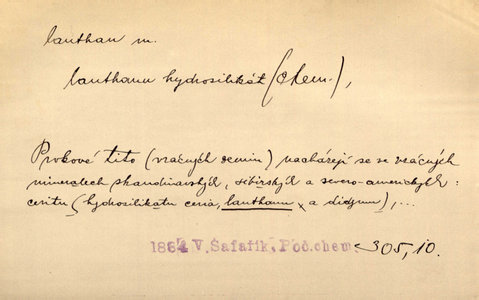 lanthan m.
lanthanu hydrosilikát (chem.),
Prvkové tito (vzácných zemin) nacházejí se ve vzácných
mineralech skandinavských, sibirských a severo-amerických:
ceritu (hydrosilikátu ceria, lanthanu, a didymu), ...
1884 V. Šafařík, Poč. chem. 305, 10.